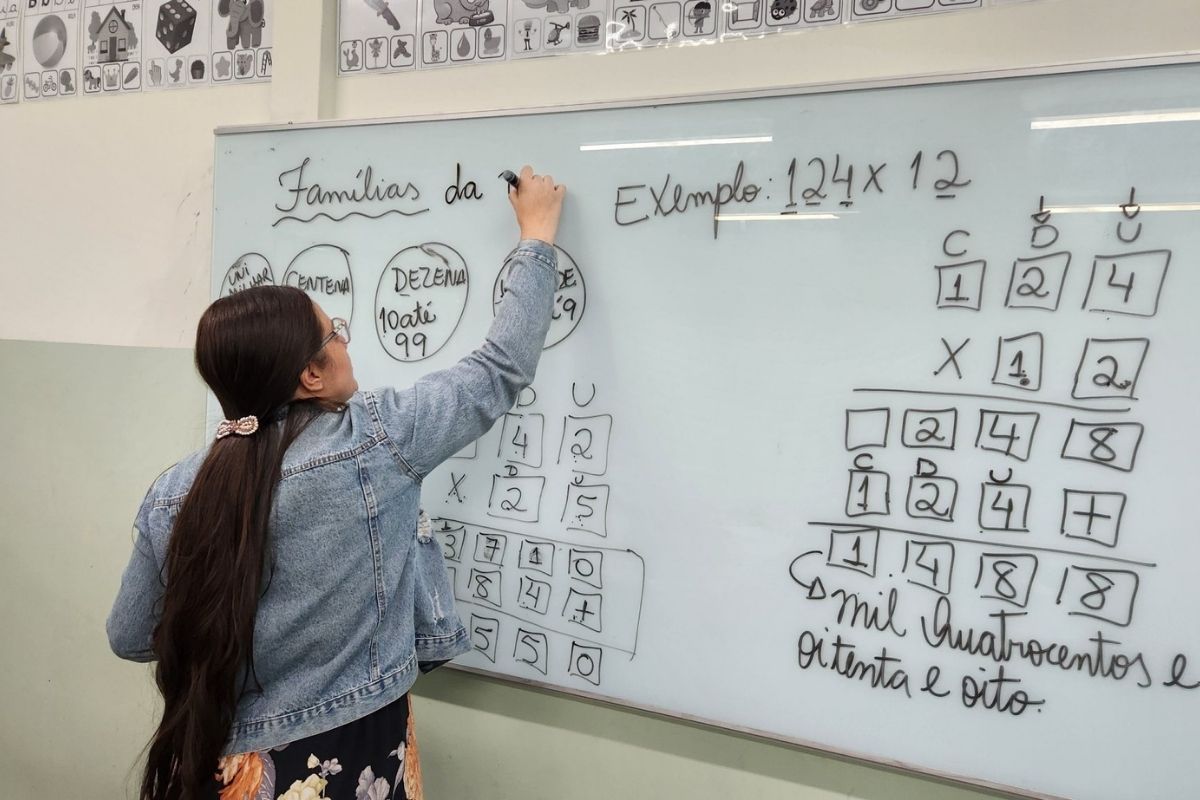 Famílias da
Exemplo: 124 x 12
UNI MILHAR
CENTENA
DEZENA
10 até
99
C D U
1 2 4
X 1 2
2 4 8
C D U
1 2 4 +
1 4 8 8
mil quatrocentos e
oitenta e oito.
D U
4 2
D U
X 2 5
3 7 1 0
8 4 +
5 5 0